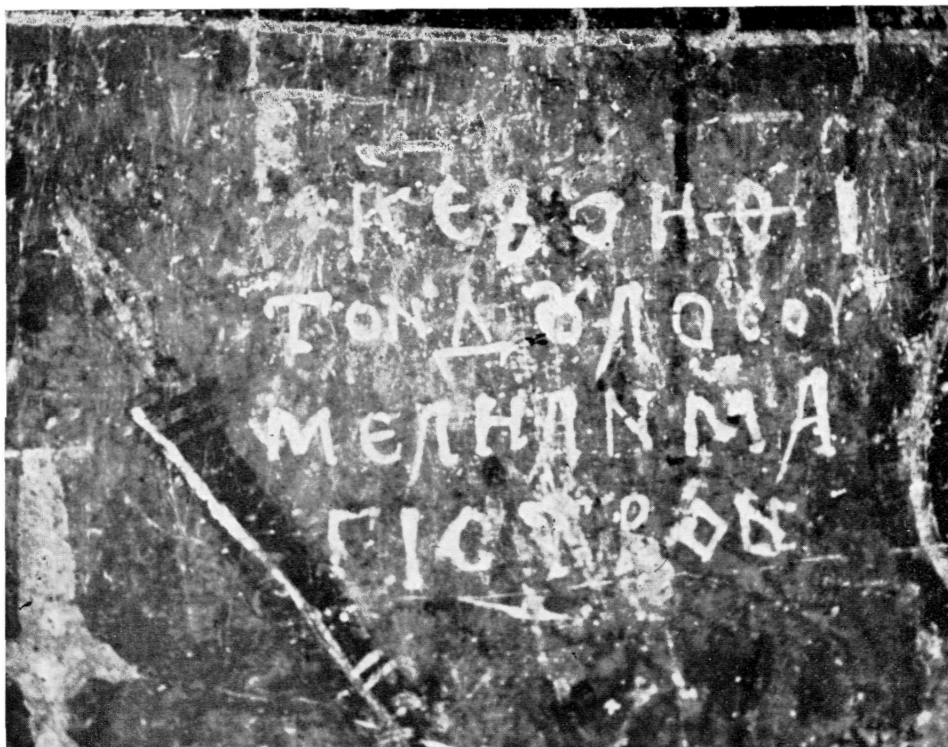 ΚΕ ΒΟΗΘΙ
ΤΟΝ ΔȢΛΟ CΟΥ
ΜΕΛΗΑΝ ΜΑ
ΓΙCΤΡΟΝ